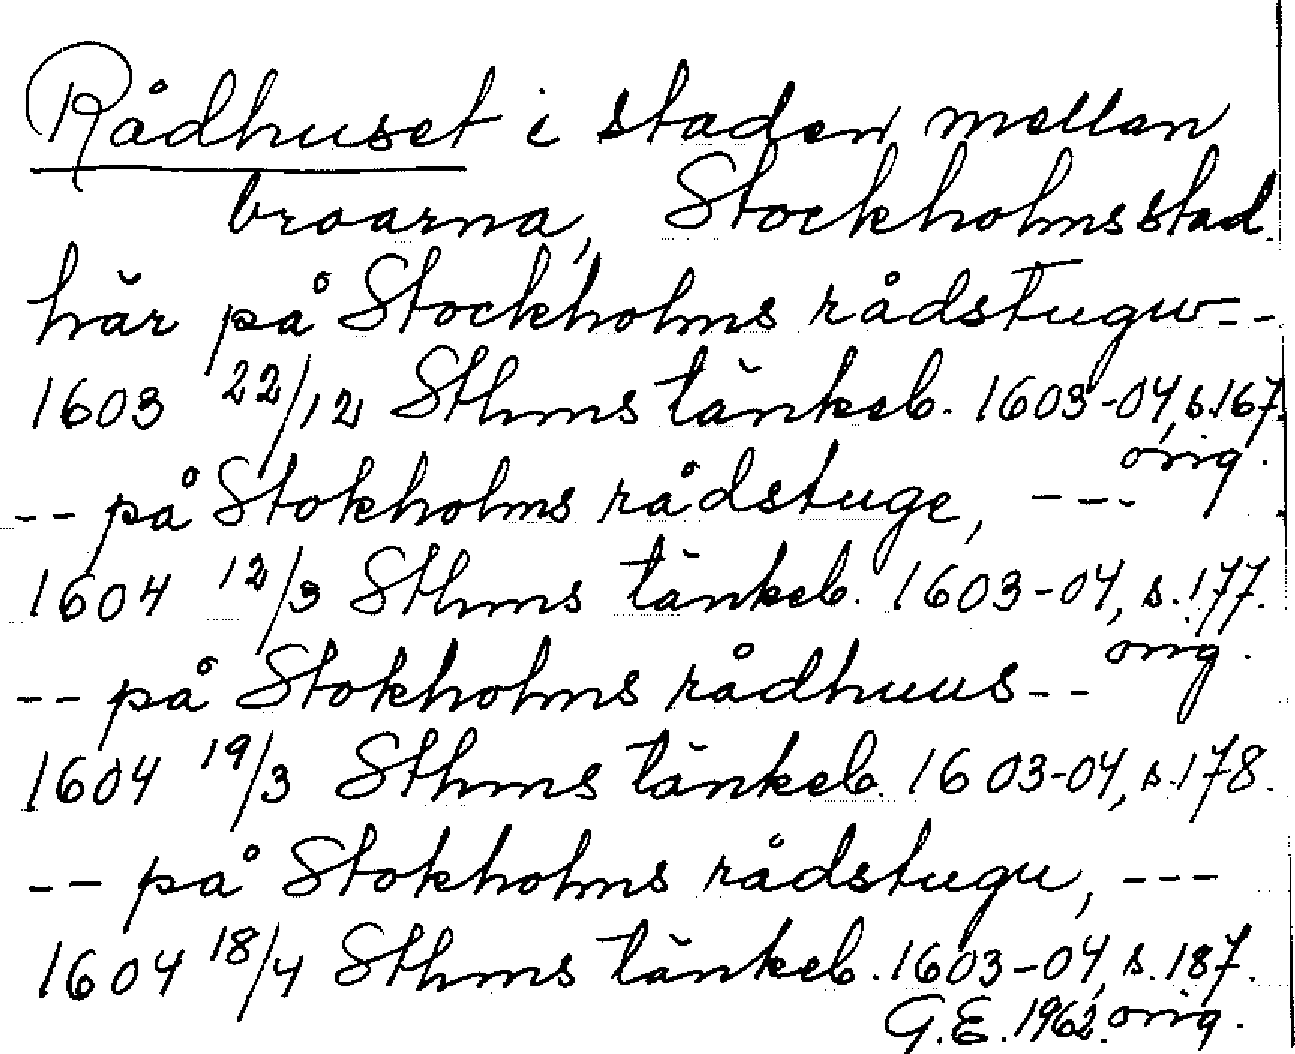 Rådhuset i staden mellan
broarna, Stockholms stad.
här på Stockholms rådstugw--
1603 22/12 Sthms tänkeb. 1603-04, s.167.
orig.
-- på Stokholms rådstuge, ---
1604 12/3 Sthms tänkeb. 1603-04, s.177.
orig.
-- på Stokholms rådhuus--
1604 19/3 Sthms tänkeb. 1603-04, s.178.
-- på Stokholms rådstugu, ---
1604 18/4 Sthms tänkeb. 1603-04, s.187.
G.E. 1962. orig.